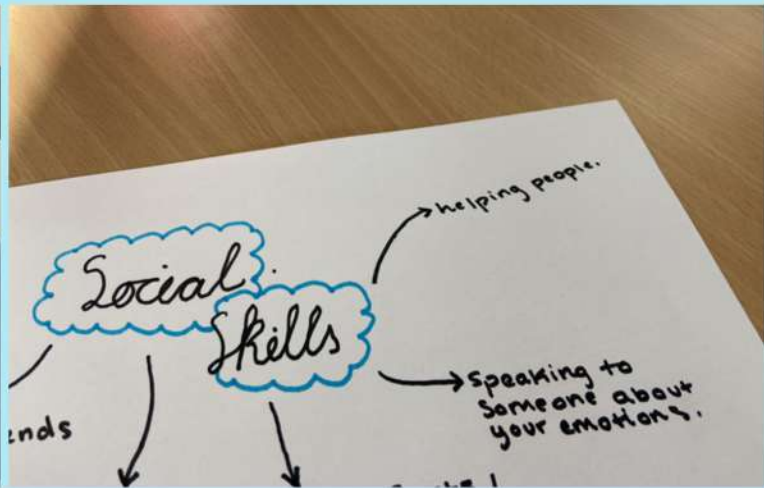 Social
Skills
helping people.
speaking to
someone about
your emotions.